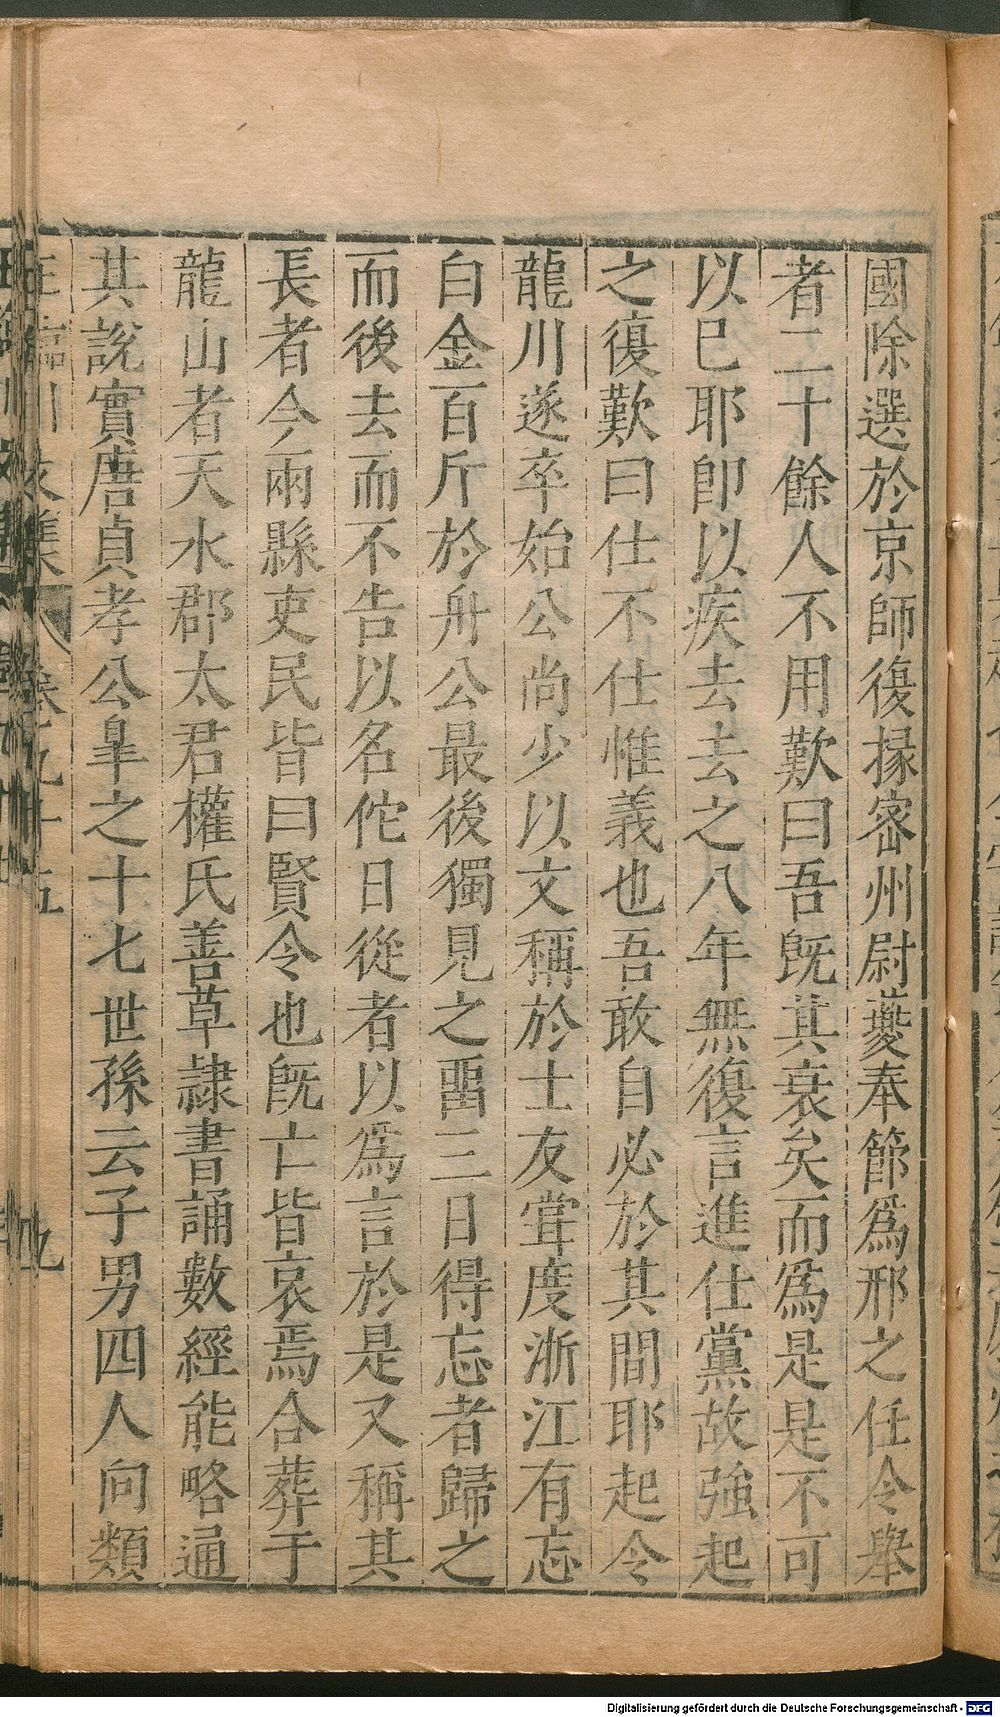 國除選於京師復掾密州尉夔奉節爲邢之任令舉
者二十餘人不用歎曰吾旣其衰矣而爲是是不可
以已耶卽以疾去去之八年無復言進仕黨故強起
之復歎曰仕不仕惟義也吾敢自必於其間耶起令
龍川遂卒始公尚少以文稱於士友甞度淅江有忘
白金百斤於舟公最後獨見之畱三日得忘者歸之
而後去而不告以名佗日從者以爲言於是又稱其
長者今兩縣吏民皆曰賢令也旣亡皆哀焉合葬于
龍山者天水郡太君權氏善草隷書誦數經能略通
其說實唐貞孝公臯之十七世孫云子男四人向類
王臨川文集 卷九十五 九
Digitalisierung gefördert durch die Deutsche Forschungsgemeinschaft - DFG